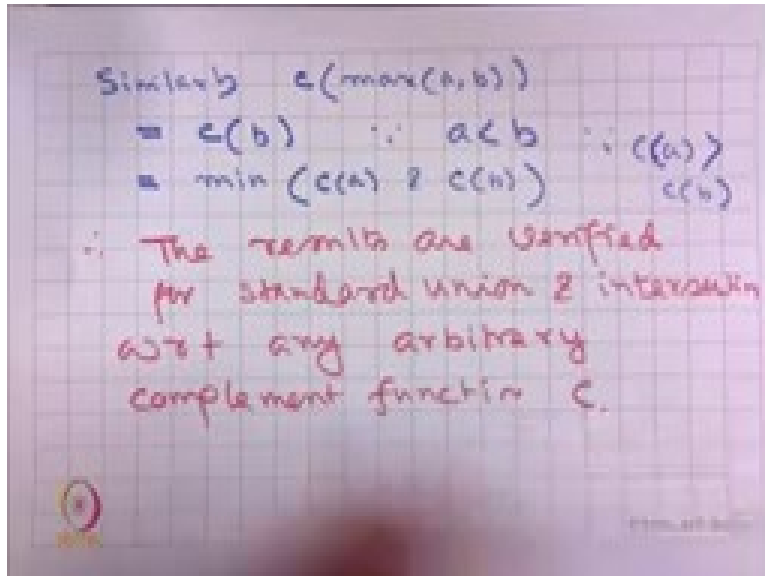 Similarly c(max(a,b))
= c(b) ∵ a < b ∵ c(a) >
= min (c(a) & c(b)) c(b)
∴ The results are verified
for standard union & intersection
wrt any arbitrary
complement function C.